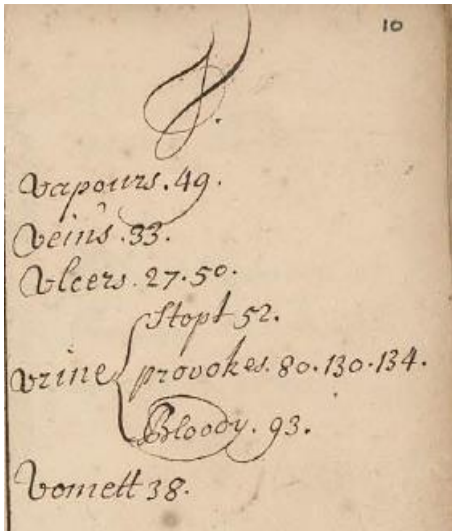 10
V.
Vapours. 49.
Veins. 33.
Vlcers. 27. 50.
Stopt 52.
Vrine provokes. 80. 130. 134.
Bloody. 93.
Vomett 38.